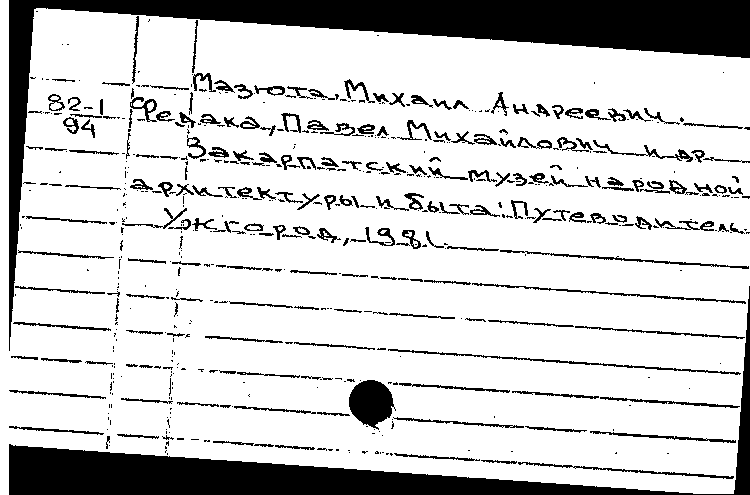 Мазюта, Михаил Андреевич.
82-1
94
Федака, Павел Михайлович и др.
Закарпатский музей народной
архитектуры и быта: Путеводитель.
Ужгород, 1981.